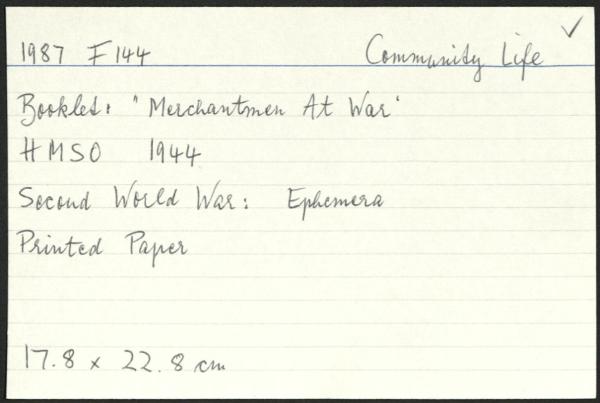 1987 F144 Community Life ✓
Booklet: "Merchantmen At War"
HMSO 1944
Second World War: Ephemera
Printed Paper
17.8 x 22.8 cm